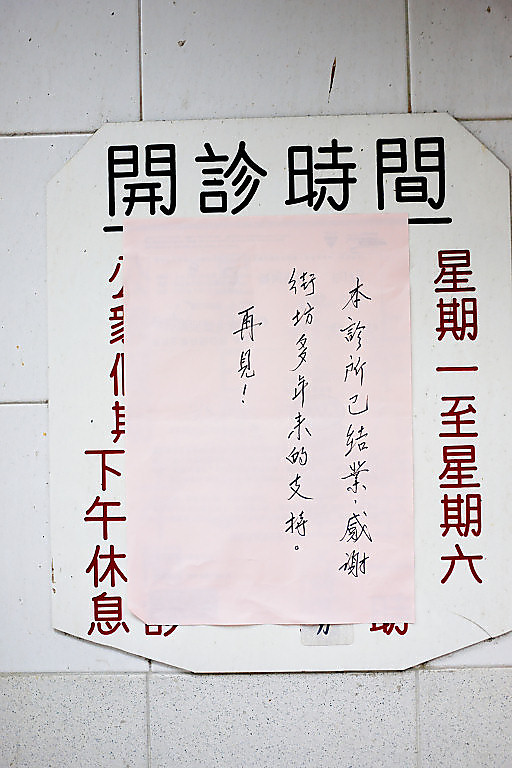 開診時間
星期一至星期六
本診所已結業，感謝
街坊多年來的支持。
再見！
下午休息